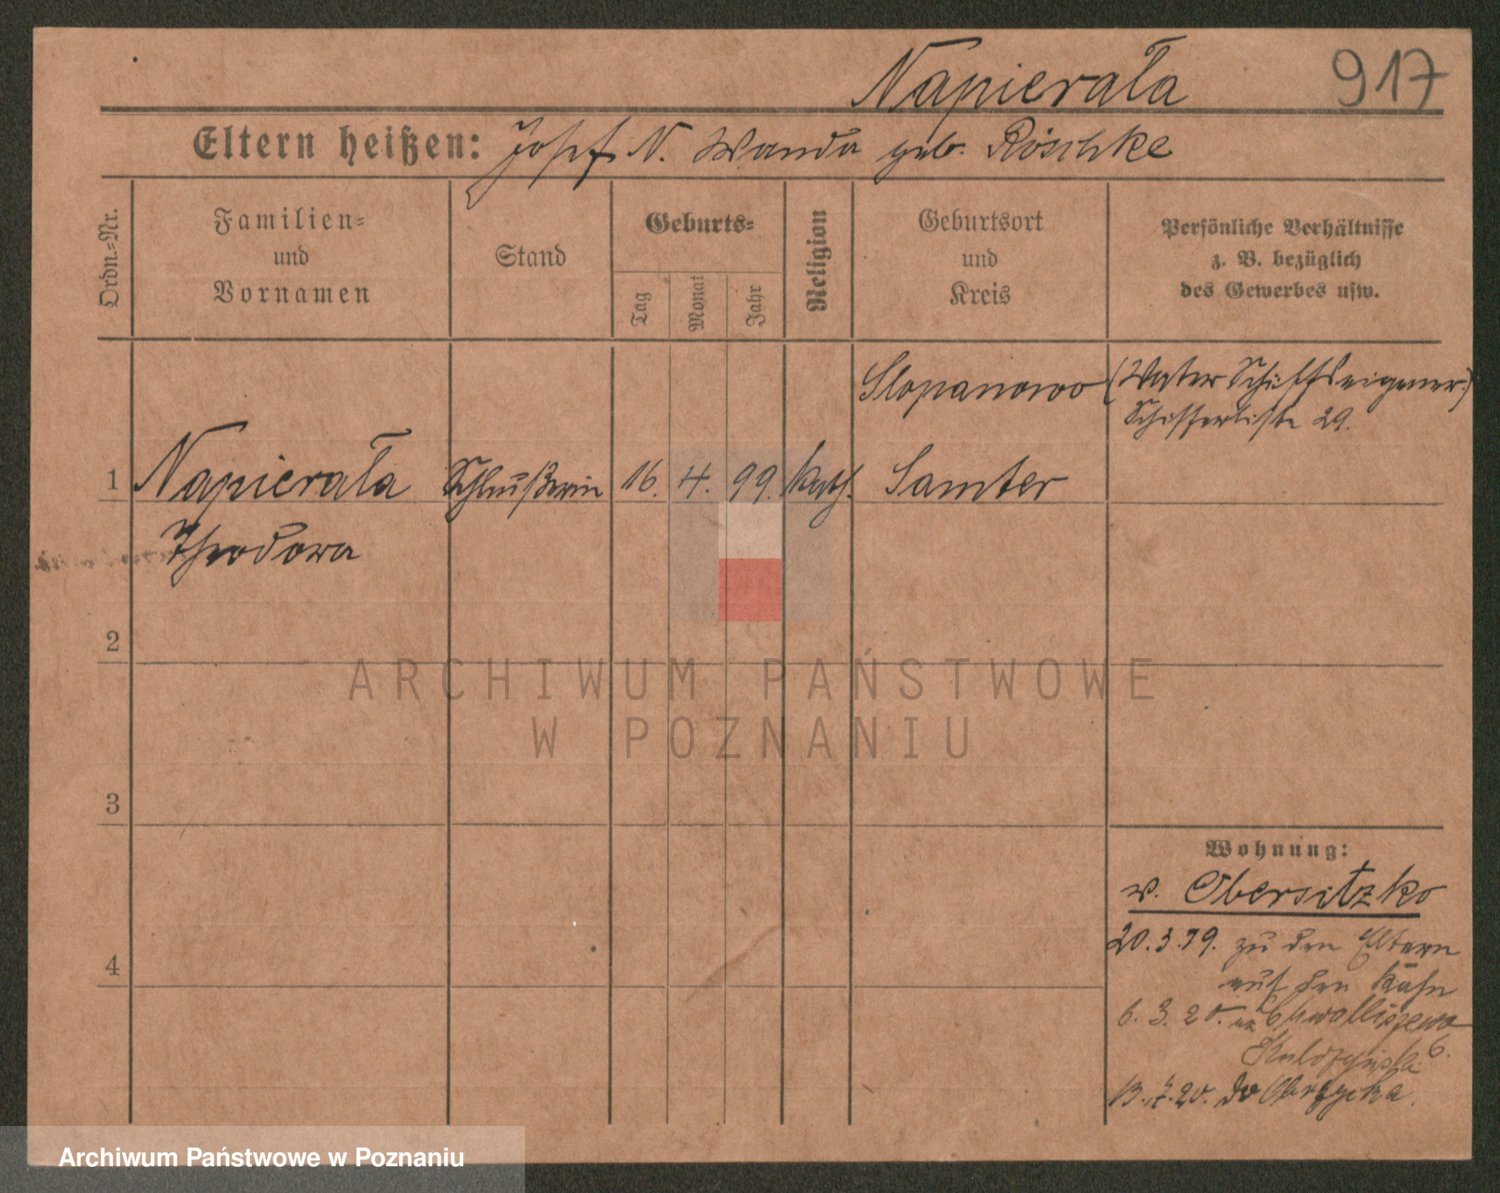 Napierała 917
Eltern heißen: Josef N. Wanda geb. Röschke
Ordn.-Nr.
Familien-
und
Vornamen
Stand
Geburts-
Tag
Monat
Jahr
Religion
Geburtsort
und
Kreis
Persönliche Verhältnisse
z. B. bezüglich
des Gewerbes usw.
Slopanowo (Vater Schiffseigener)
Schifferliste 29.
1 Napierała 16. 4. 99. kath. Samter
Theodora
2
3
4
Wohnung:
v. Obersitzko
20.3.19. zu den Eltern
auf den Kahn
6. 3. 20. Chwalliszewo
6.
13.7.20. do Obrzycka.
ARCHIWUM PAŃSTWOWE
W POZNANIU
Archiwum Państwowe w Poznaniu